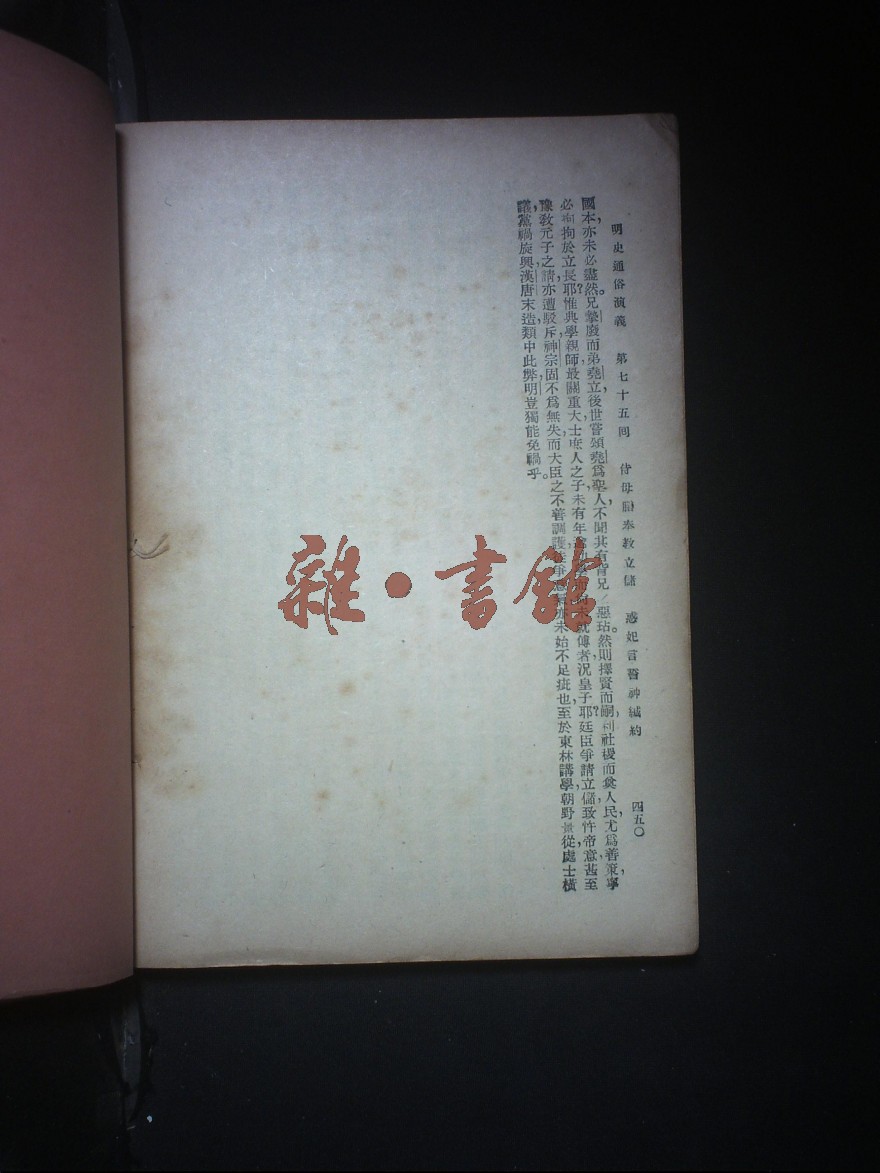 明史通俗演義　第七十五回　侍母后奉教立儲　惑妃言誓神緘約　四五〇
國本，亦未必盡然。兄摯廢而弟堯立，後世嘗頌堯爲聖人，不聞其有背兄之惡玷。然則擇賢而嗣，利社稷而奠人民，尤爲善策，寧
必拘拘於立長耶？惟典學親師，最關重大，士庶人之子，未有年 未就傅者，況皇子耶？廷臣爭請立儲，致忤帝意，甚至
豫敎元子之請，亦遭駁斥，神宗固不爲無失，而大臣之不善調護， 未始不足疵也。至於東林講學，朝野景從，處士橫
議，黨禍旋興，漢唐末造，類中此弊，明豈獨能免禍乎。
雜·書館